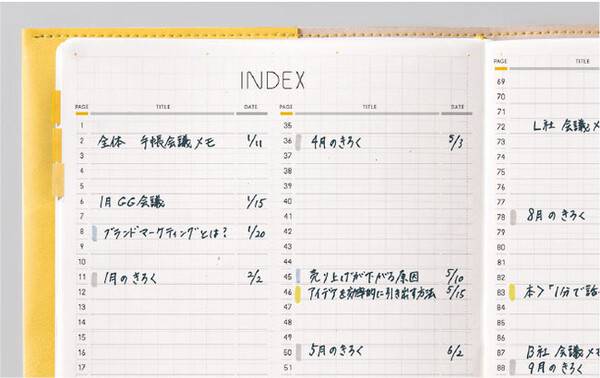 INDEX
PAGE TITLE DATE
1
2 全体 手帳会議メモ 1/11
3
4
5
6 1月 GG会議 1/15
7
8 ブランドマーケティングとは? 1/20
9
10
11 1月のきろく 2/2
12
13
14
15
16
17
PAGE TITLE DATE
35
36 4月のきろく 5/3
37
38
39
40
41
42
43
44
45 売り上げが下がる原因 5/10
46 アイデアを効率的に引き出す方法 5/15
47
48
49
50 5月のきろく 6/2
51
69
70
71
72 L社 会議メモ
73
74
75
76
77
78 8月のきろく
79
80
81
82
83 本>「1分で話
84
85
86
87 B社 会議メモ
88 9月のきろく